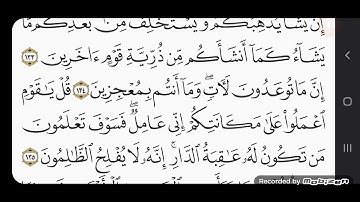 إِن يَشَأْ يُذْهِبْكُمْ وَيَسْتَخْلِفْ مِنۢ بَعْدِكُم مَّا
يَشَآءُ كَمَآ أَنشَأَكُم مِّن ذُرِّيَّةِ قَوْمٍ ءَاخَرِينَ ١٣٣
إِنَّ مَا تُوعَدُونَ لَأٓتٍۖ وَمَآ أَنتُم بِمُعْجِزِينَ ١٣٤ قُلْ يَٰقَوْمِ
ٱعْمَلُوا۟ عَلَىٰ مَكَانَتِكُمْ إِنِّى عَامِلٌۖ فَسَوْفَ تَعْلَمُونَ
مَن تَكُونُ لَهُۥ عَٰقِبَةُ ٱلدَّارِۚ إِنَّهُۥ لَا يُفْلِحُ ٱلظَّٰلِمُونَ ١٣٥
Recorded by Mobizen